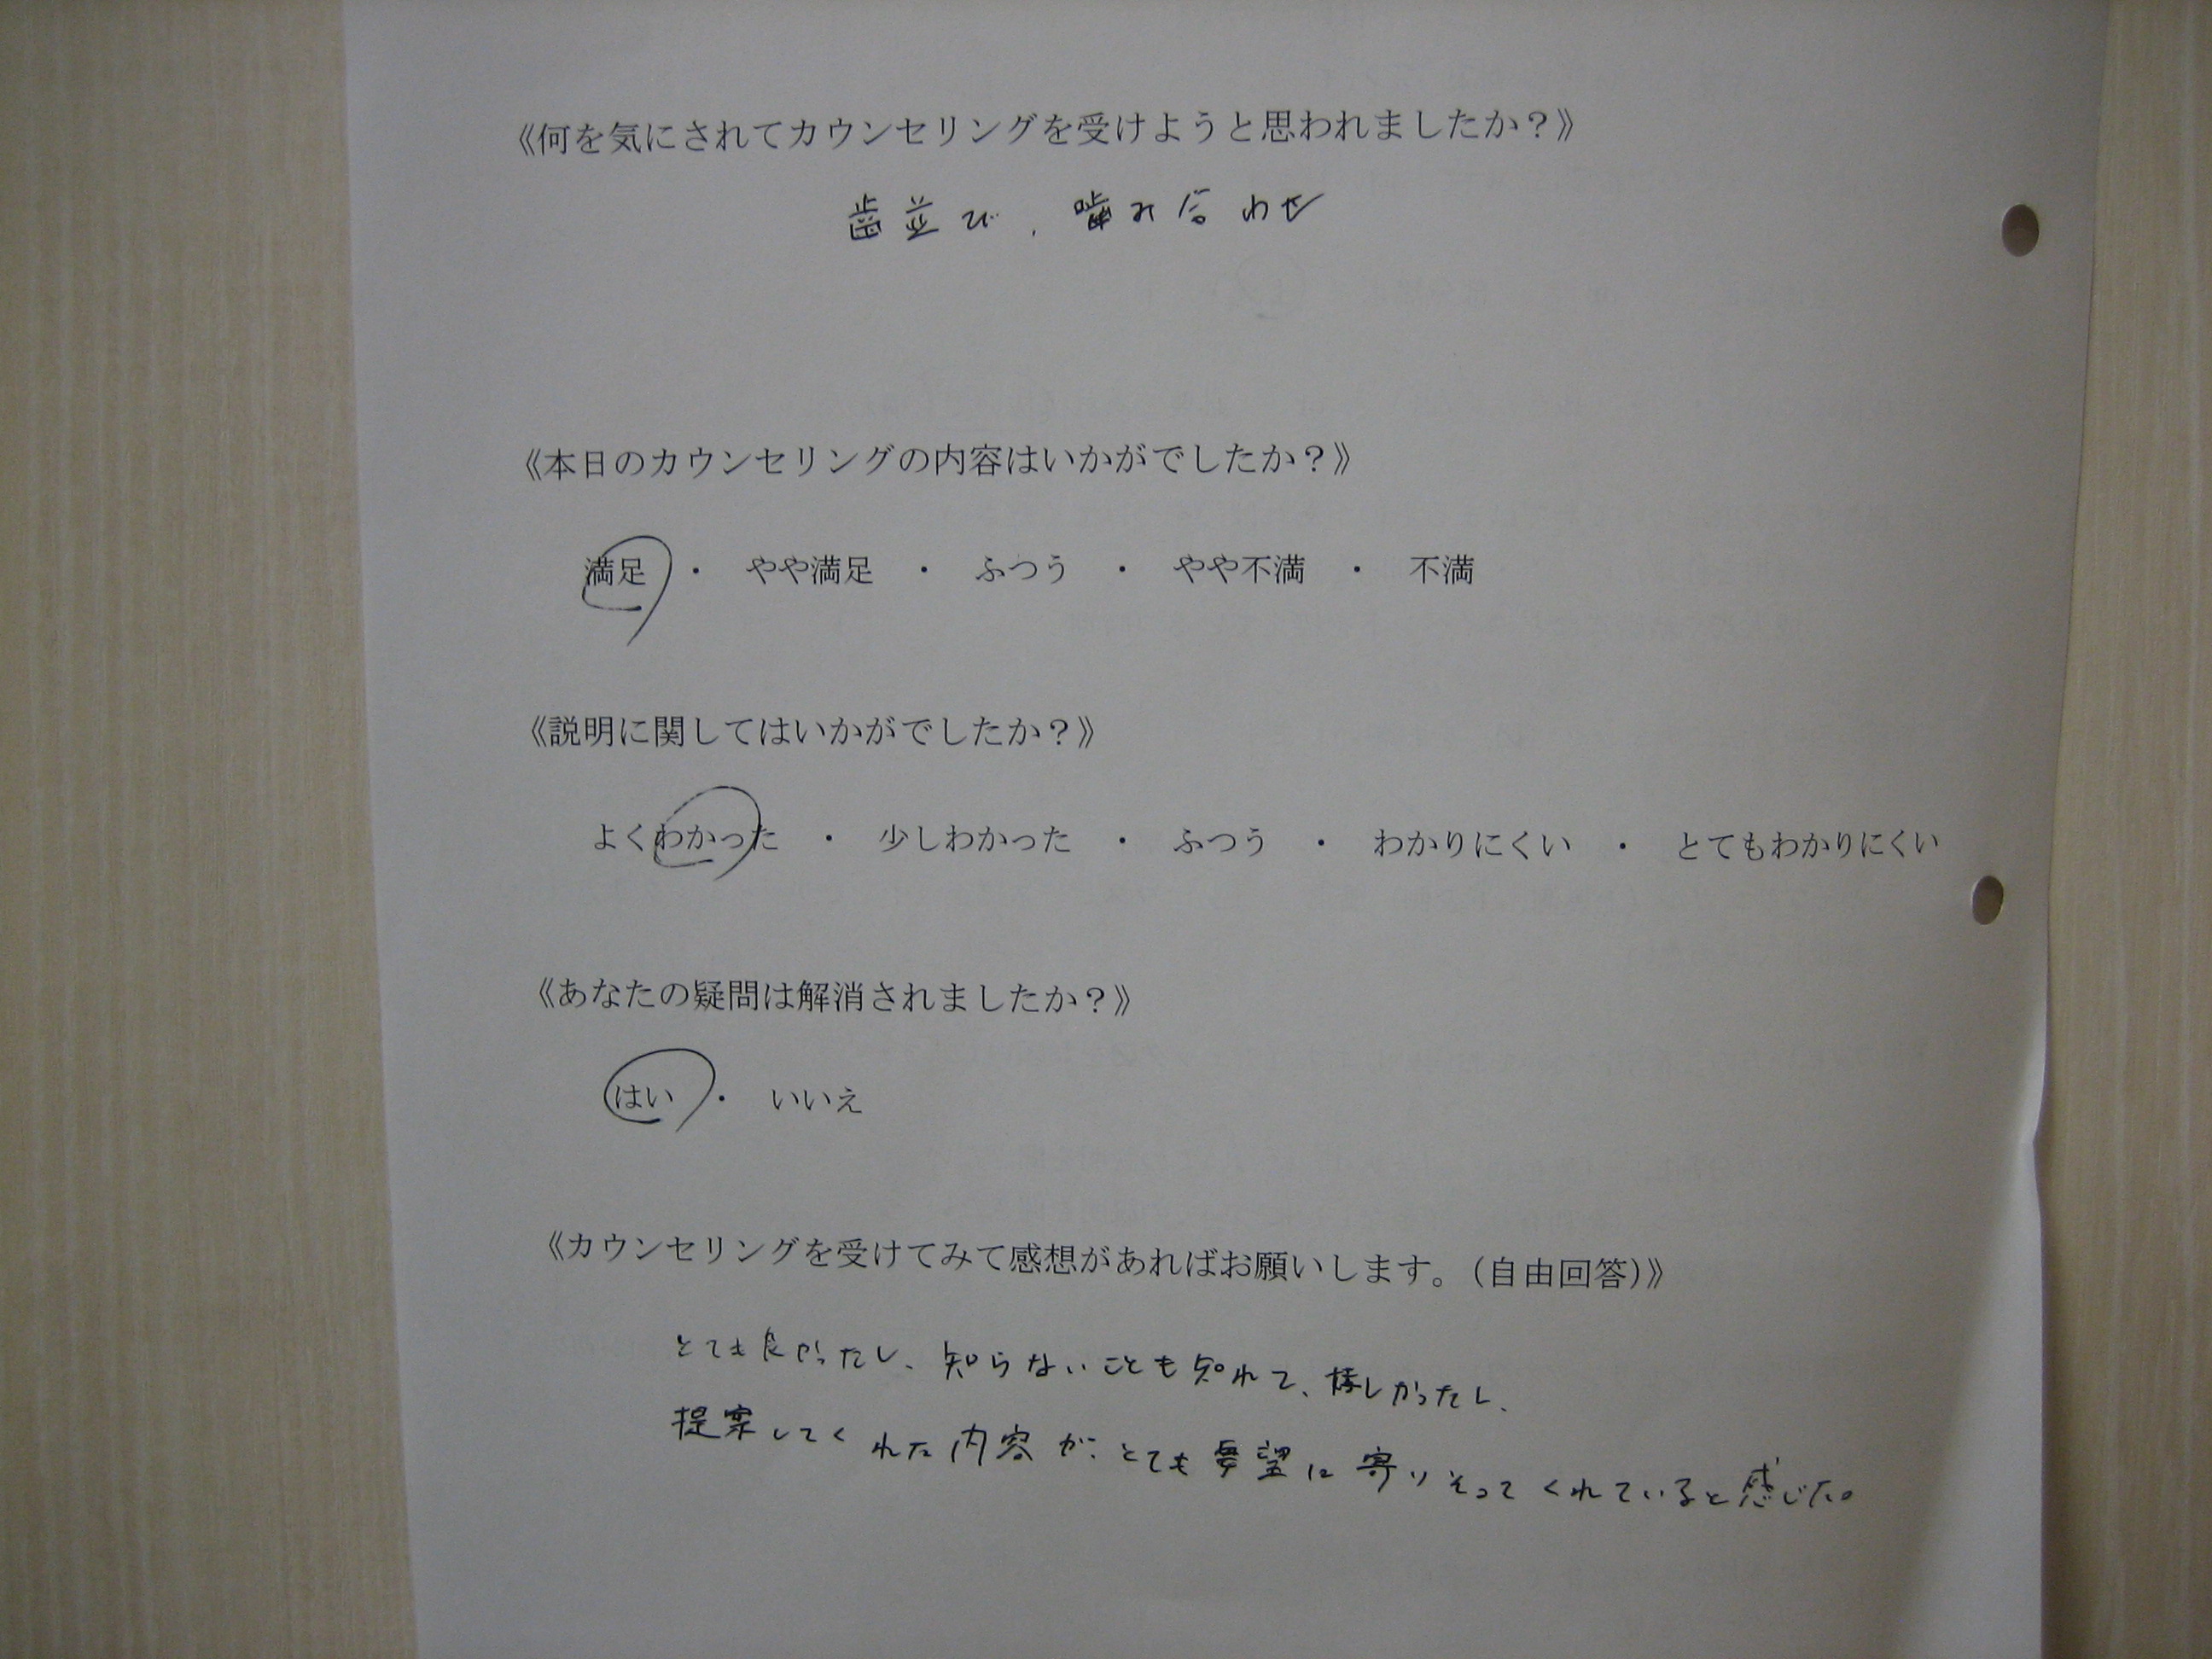 《何を気にされてカウンセリングを受けようと思われましたか？》
歯並び、噛み合わせ
《本日のカウンセリングの内容はいかがでしたか？》
満足 ・ やや満足 ・ ふつう ・ やや不満 ・ 不満
《説明に関してはいかがでしたか？》
よくわかった ・ 少しわかった ・ ふつう ・ わかりにくい ・ とてもわかりにくい
《あなたの疑問は解消されましたか？》
はい ・ いいえ
《カウンセリングを受けてみて感想があればお願いします。（自由回答）》
とても良かったし、知らないことも知れて、嬉しかったし、
提案してくれた内容が、とても要望に寄りそってくれていると感じた。